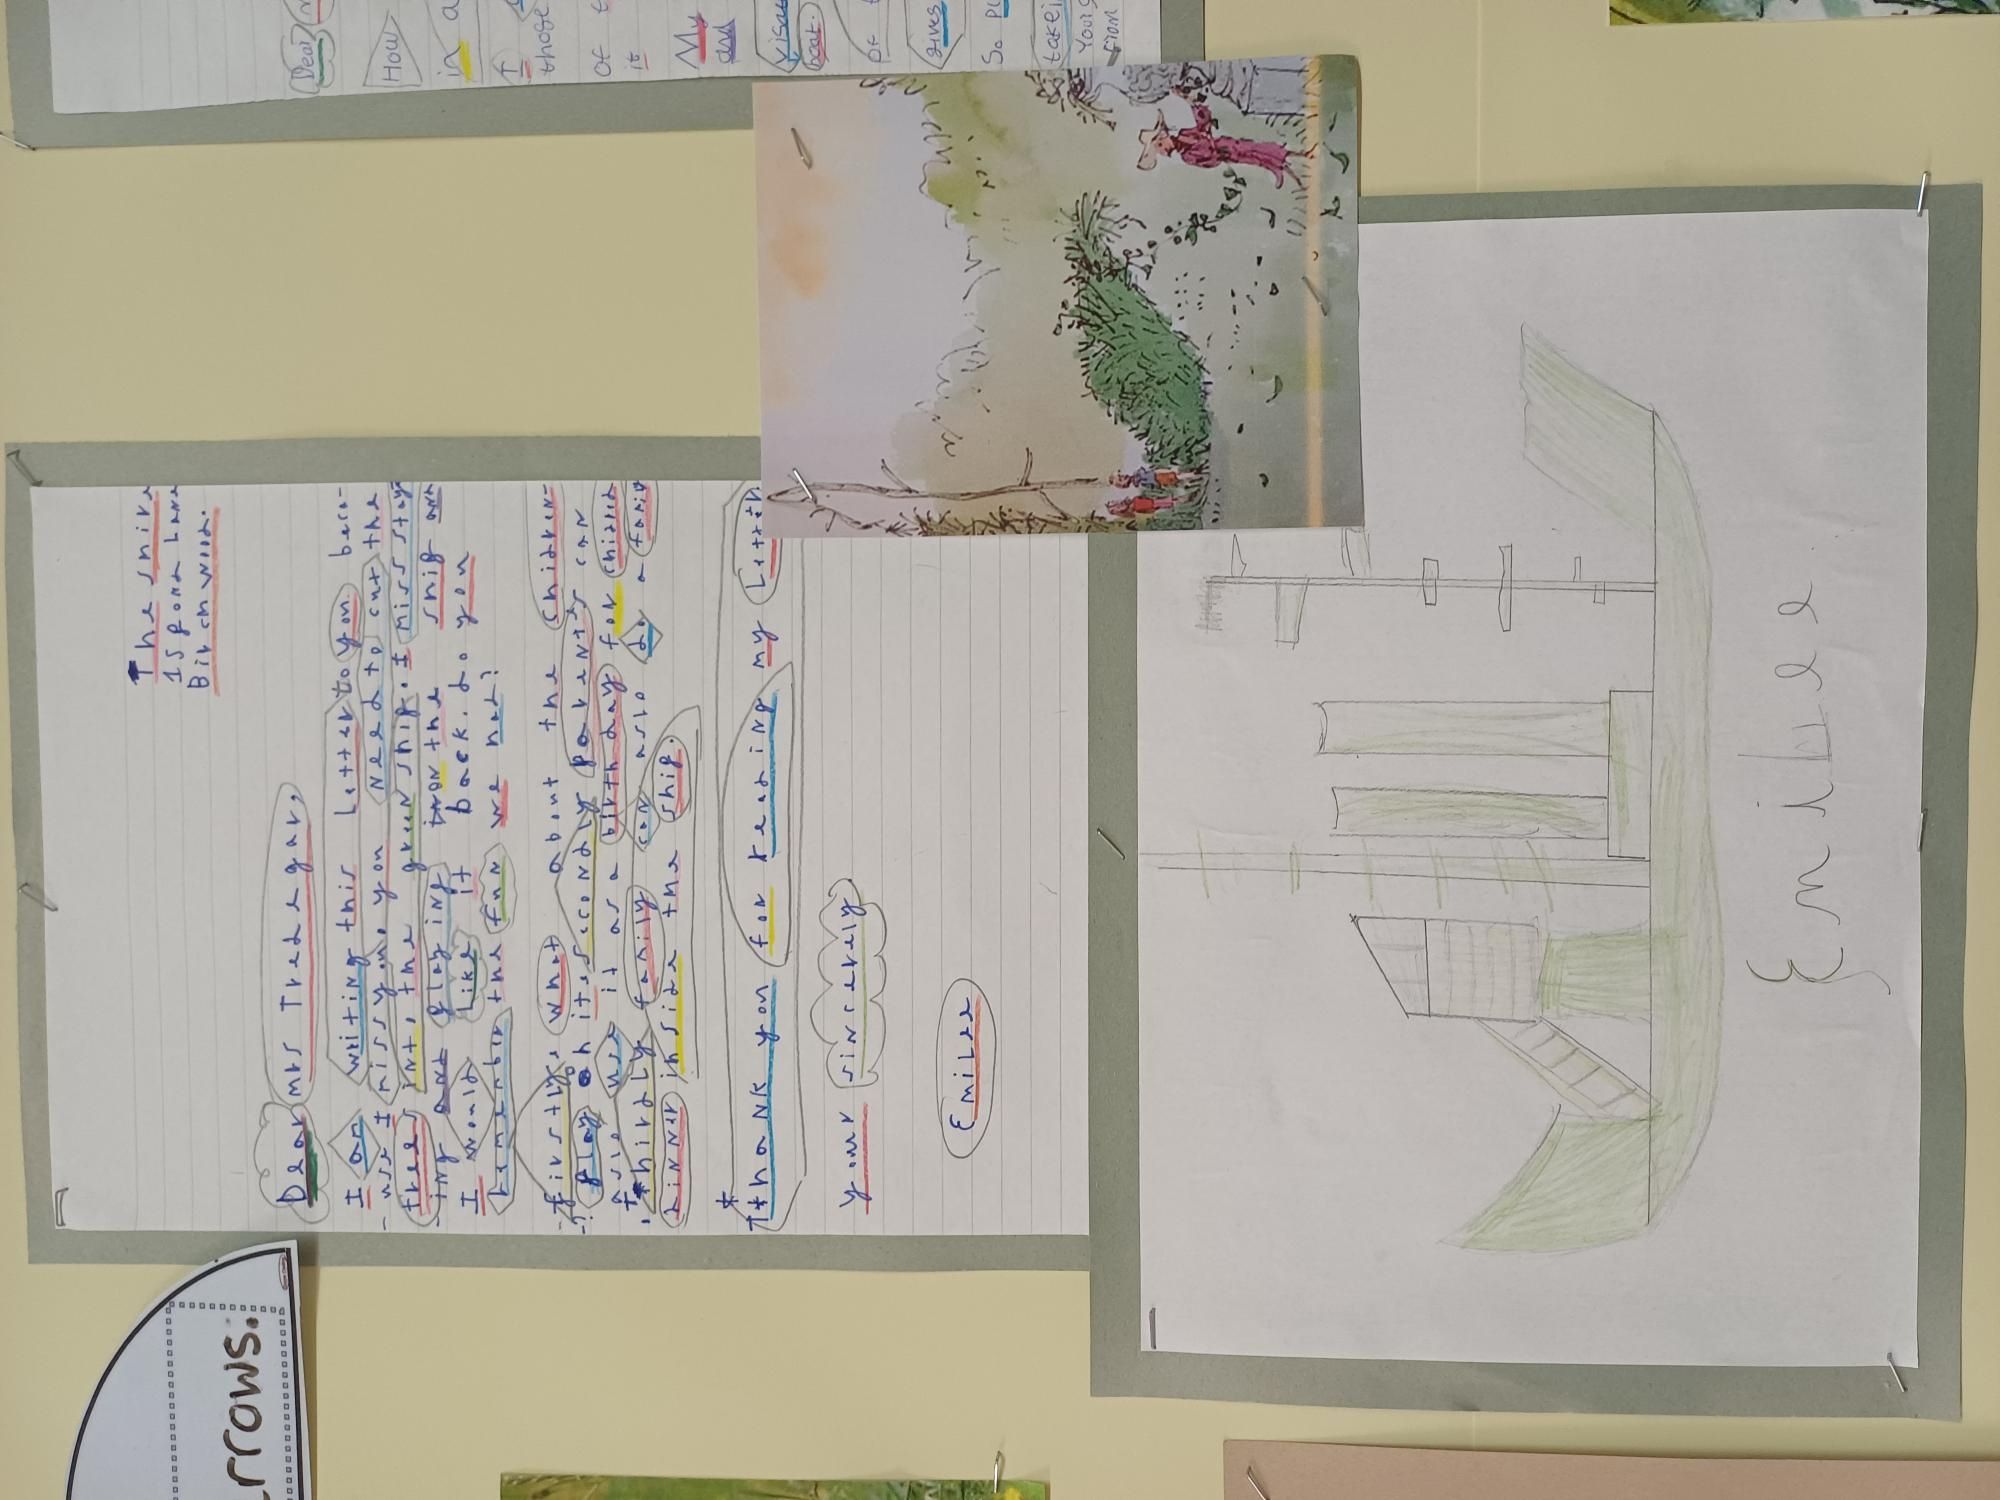 The shire
15 pond lane
Birchwood.
Dear mrs Tredegar,
I am writing this letter to you beca-
-use I miss you, you need to cut the
trees int, the green ship. I miss stay
-ing and playing inon the ship and
I would like it back. do you
remember the fun we had?
firstly, what about the children-
-? play oh it secondly parents can
also use it as a birthday for child
thirdly family can also do a family
dinner inside the ship.
thank you for reading my letter
your sincerely
Emilee
Emilee
rrows:
Dear
How
in a
I
those
of t
it
My
and
visa
boat.
of t
gives
So pl
takei
your
from